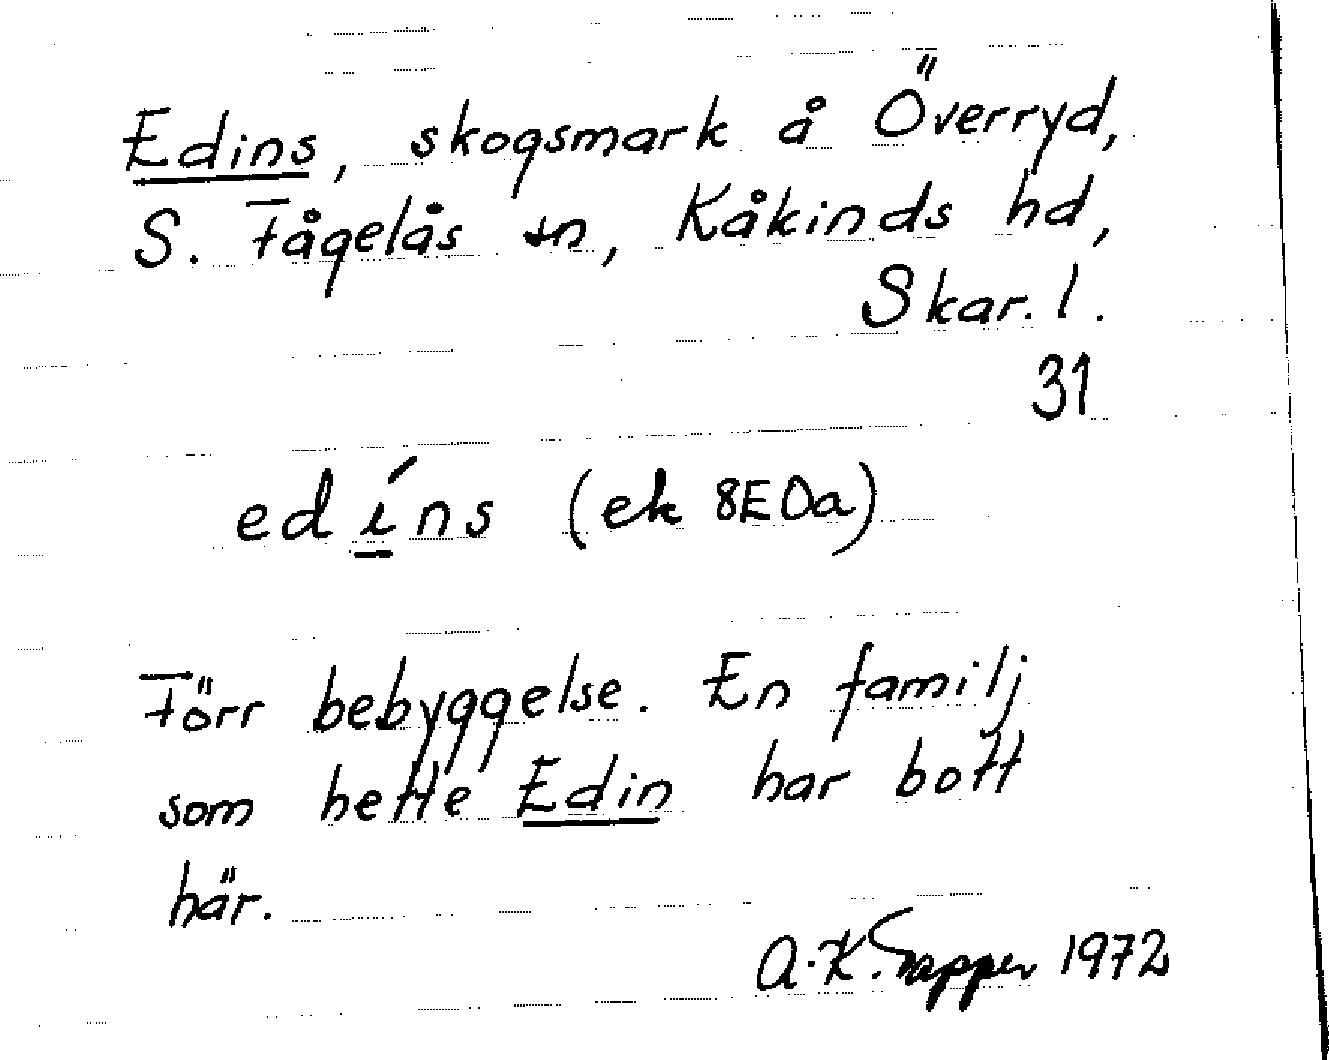 Edins, skogsmark å Överryd,
S. Fågelås sn, Kåkinds hd,
Skar. l.
31
edíns (ek 8E0a)
Förr bebyggelse. En familj
som hette Edin har bott
här.
A-K. 1972